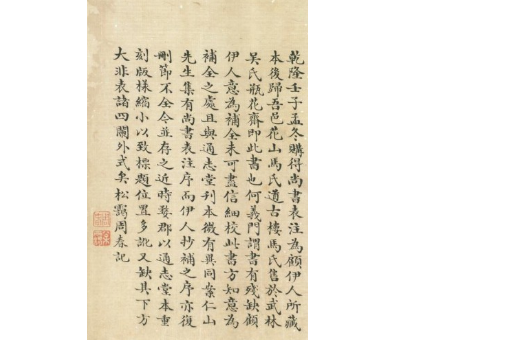 乾隆壬子孟冬購得尚書表注為顧伊人所藏
本後歸吾邑花山馬氏道古樓馬氏舊於武林
吳氏瓶花齋即此書也何義門謂書有殘缺顧
伊人意為補全未可盡信細校此書方知意為
補全之處且與通志堂刊本微有異同案仁山
先生集有尚書表注序而伊人抄補之序亦復
刪節不全今並存之近時婺郡以通志堂本重
刻版樣縮小以致標題位置多訛又缺其下方
大非表諸四闌外式矣松靄周春記